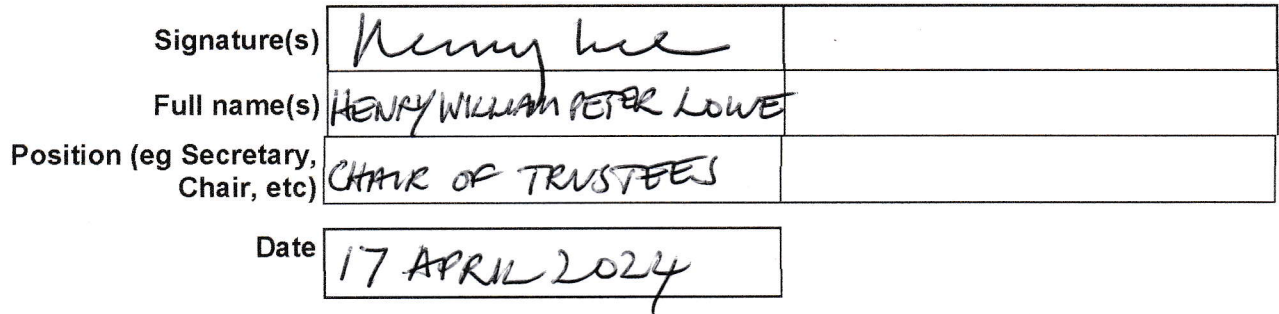 Signature(s) Henry Lowe
Full name(s) HENRY WILLIAM PETER LOWE
Position (eg Secretary,
Chair, etc) CHAIR OF TRUSTEES
Date 17 APRIL 2024